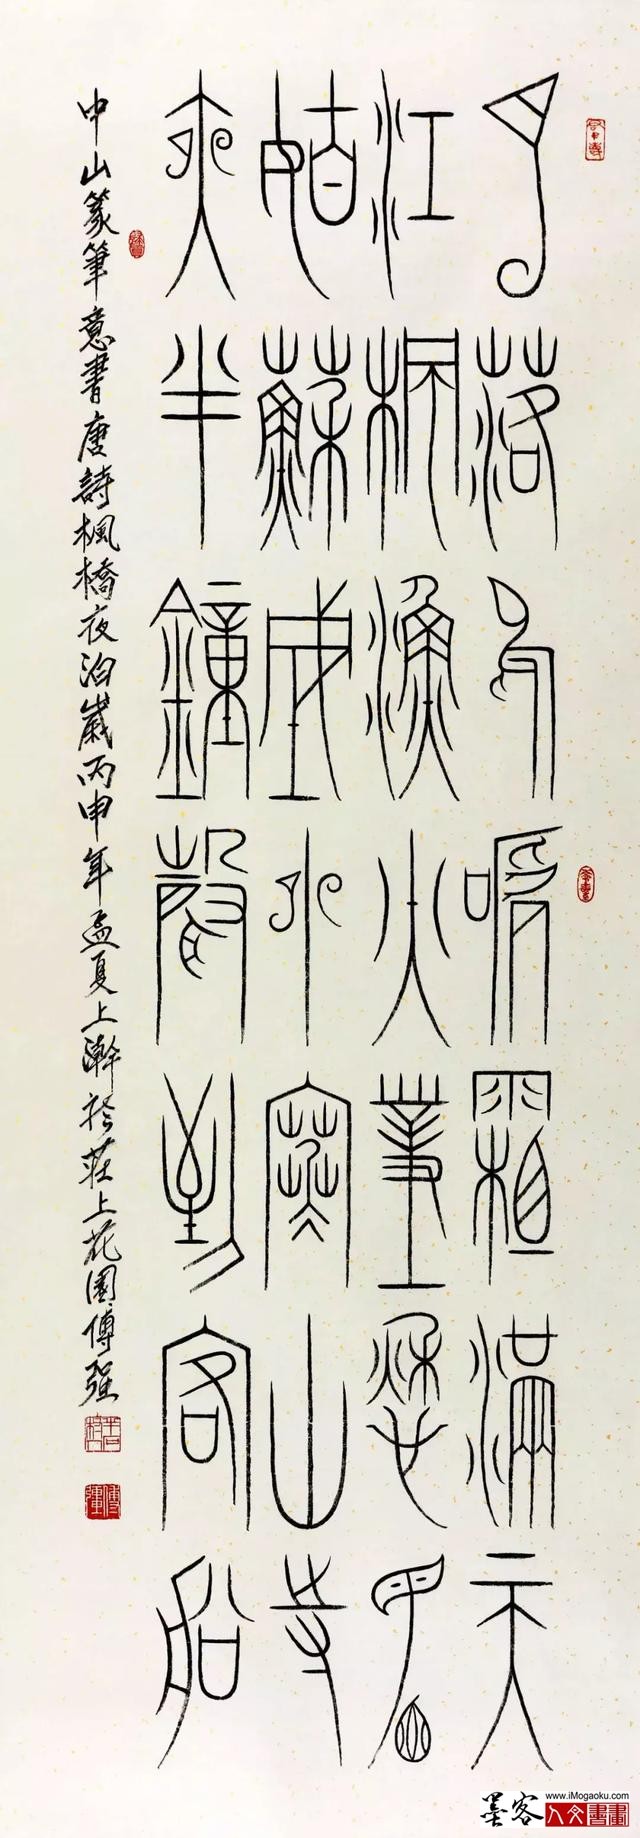 月落烏啼霜滿天
江楓漁火對愁眠
姑蘇城外寒山寺
夜半鐘聲到客船
中山篆筆意書唐詩楓橋夜泊歲丙申年孟夏上澣於莊上花園傅強
傅強
墨客
www.iMogaoku.com
人文書畫